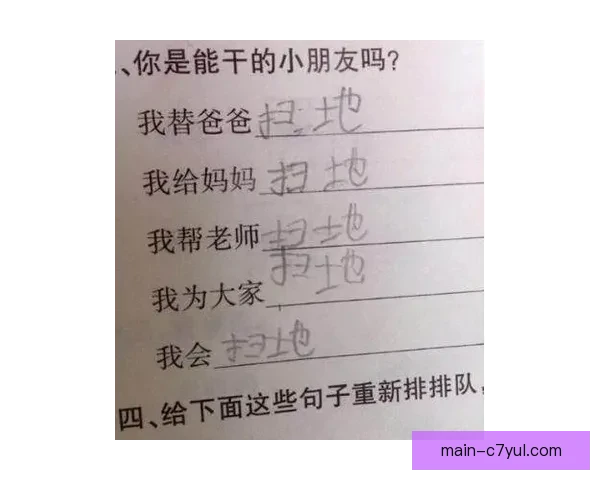 、你是能干的小朋友吗？
我替爸爸扫地
我给妈妈扫地
我帮老师扫地
我为大家扫地
我会扫地
四、给下面这些句子重新排排队，
main-c7yul.com